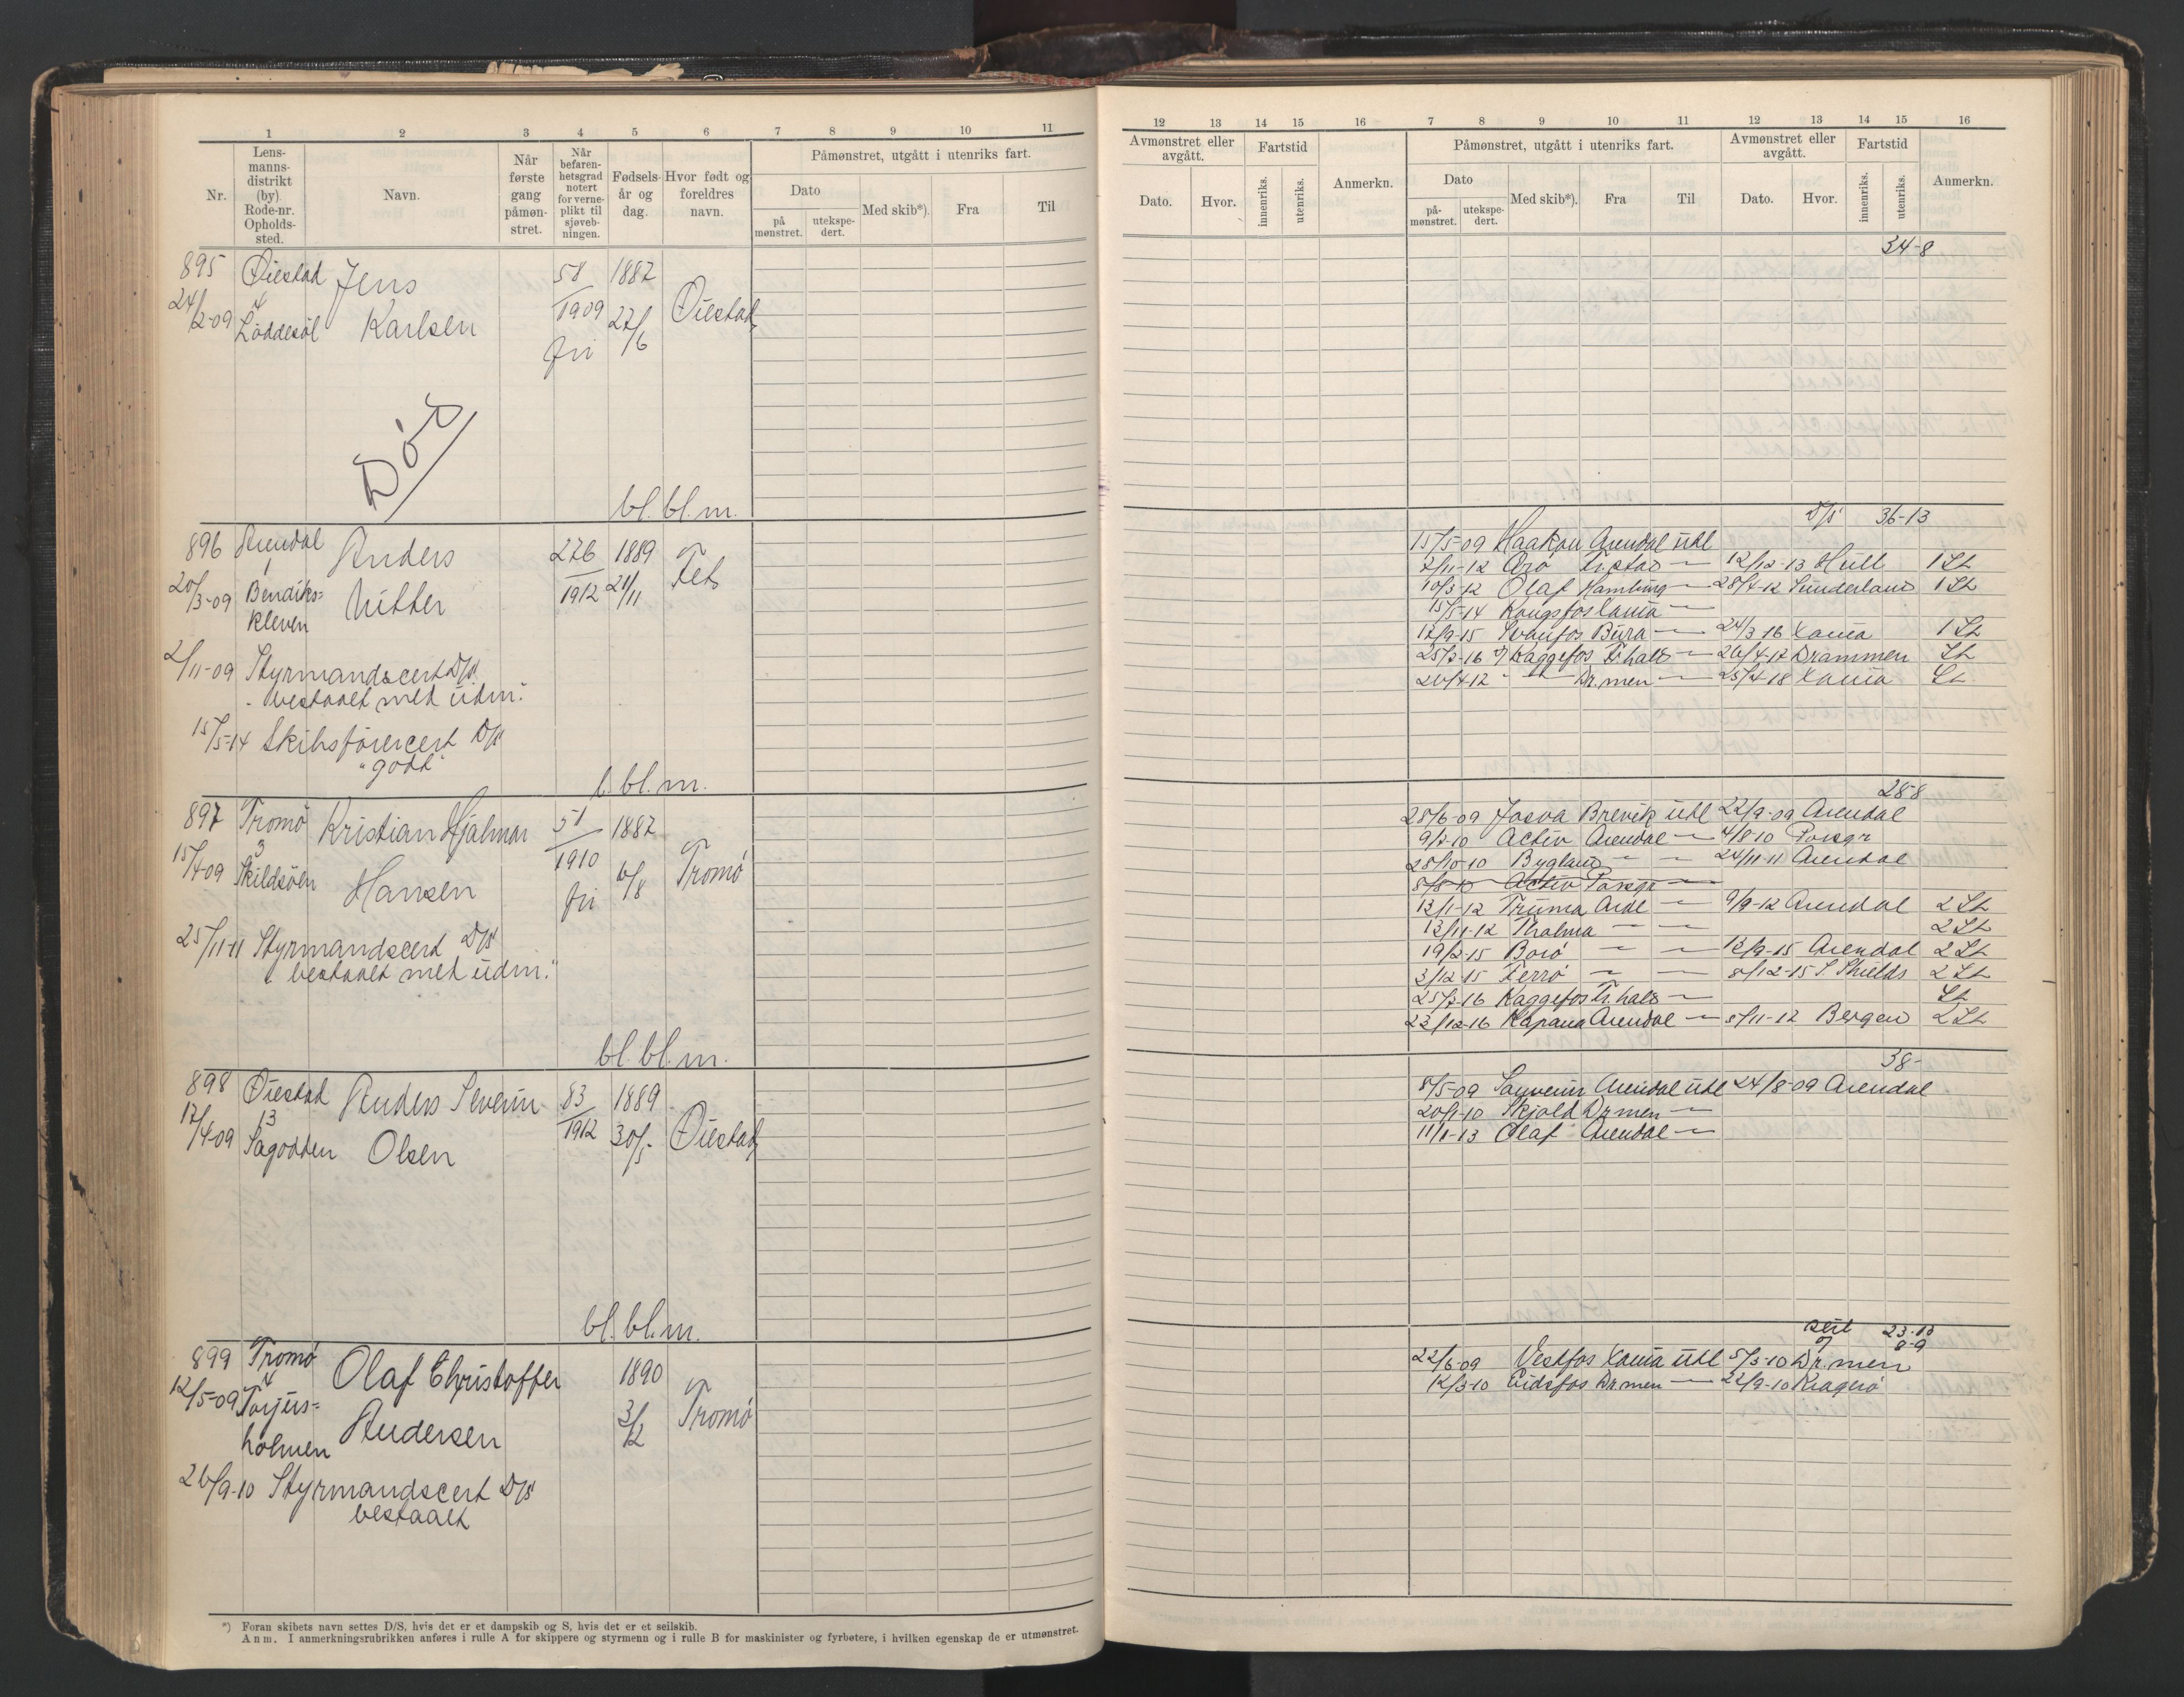 1 2 3 4 5 6 7 8 9 10 11
Nr.
Lens-
manns-
distrikt
(by).
Rode-nr.
Opholds-
sted.
Navn.
Når
første
gang
påmøn-
stret.
Når
befaren-
hetsgrad
notert
for verne-
plikt til
sjøveb-
ningen.
Fødsels-
år og
dag.
Hvor født og
foreldres
navn.
Påmønstret, utgått i utenriks fart.
Dato
på
mønstret.
utekspe-
dert.
Med skib*).
Fra
Til
895 Øiestad Jens 58 1887
24/2-09 4 Karlsen 1909 27/6 Øiestad
Løddesøl fri
Død
bl. bl. m.
896 Arendal Anders 276 1889 Fet
20/3-09 1 Bendiks= Nitter 1912 21/11
kleven
2/11-09 Styrmandscert D/S
"bestaaet med udm."
15/5-14 Skibsførercert D/S
"godt"
b. bl. m.
897 Tromø Kristian Hjalmar 51 1887
15/4-09 3 Skildsøen Hansen 1910 6/8 Tromø
fri
25/11-11 Styrmandscert D/S
"bestaaet med udm."
bl. bl. m.
898 Øiestad Anders Severin 83 1889
17/4-09 13 Olsen 1912 30/5 Øiestad
Sagodden
bl. bl. m.
899 Tromø Olaf Christoffer 1890
12/5-09 4 Torjus= Andersen 3/12 Tromø
holmen
26/9-10 Styrmandscert D/S
bestaaet
*) Foran skibets navn settes D/S, hvis det er et dampskib og S, hvis det er et seilskib.
Anm. I anmerkningsrubrikken anføres i rulle A for skippere og styrmenn og i rulle B for maskinister og fyrbøtere, i hvilken egenskap de er utmønstret.
12 13 14 15 16 7 8 9 10 11 12 13 14 15 16
Avmønstret eller
avgått.
Dato.
Hvor.
Fartstid
innenriks.
utenriks.
Anmerkn.
Påmønstret, utgått i utenriks fart.
Dato
på-
mønstret.
utekspe-
dert.
Med skib*).
Fra
Til
Avmønstret eller
avgått.
Dato.
Hvor.
Fartstid
innenriks.
utenriks.
Anmerkn.
34-8
D/S 36-13
15/5-09 Haakon Arendal utl
7/11-12 Arø — 12/12-13 Hull 1 St
10/3-12 Olaf Hamburg — 28/4-12 Sunderland 1 St
15/5-14 Kongsfos Xania —
17/9-15 Svanfos — 24/3 16 Xania 1 St
25/7-16 Kaggefos Fr.hald — 26/4-17 Drammen St
26/4 17 — " — Dr.men — 25/4-18 Xania St
28-8
25/6-09 Josva Brevik utl 22/9-09 Arendal
9/7-10 Activ Arendal — 4/8-10 Porsgr
25/10-10 Bygland — — 24/11-11 Arendal
8/8-10 Activ Porsgr —
12/1-12 Truma Ardl — 9/9-12 Arendal 2 St
12/11-12 Thalma — — 2 St
19/2-15 Borø — — 12/9-15 Arendal 2 St
3/12 15 Ferrø — — 8/12-15 S Shields 2 St
25/7-16 Kaggefos Fr.hald — St
23/12-16 Kapana Arendal — 5/11-17 Bergen 2 St
38-
8/5-09 Souverin Arendal utl 24/8-09 Arendal
20/1-10 Skjold Dr.men —
11/1-13 Olaf Arendal —
seil 23-13
9-9
22/6-09 Vestfos Xania utl 5/3-10 Dr.men
12/3-10 Eidsfos Dr.men — 22/9-10 Kragerø